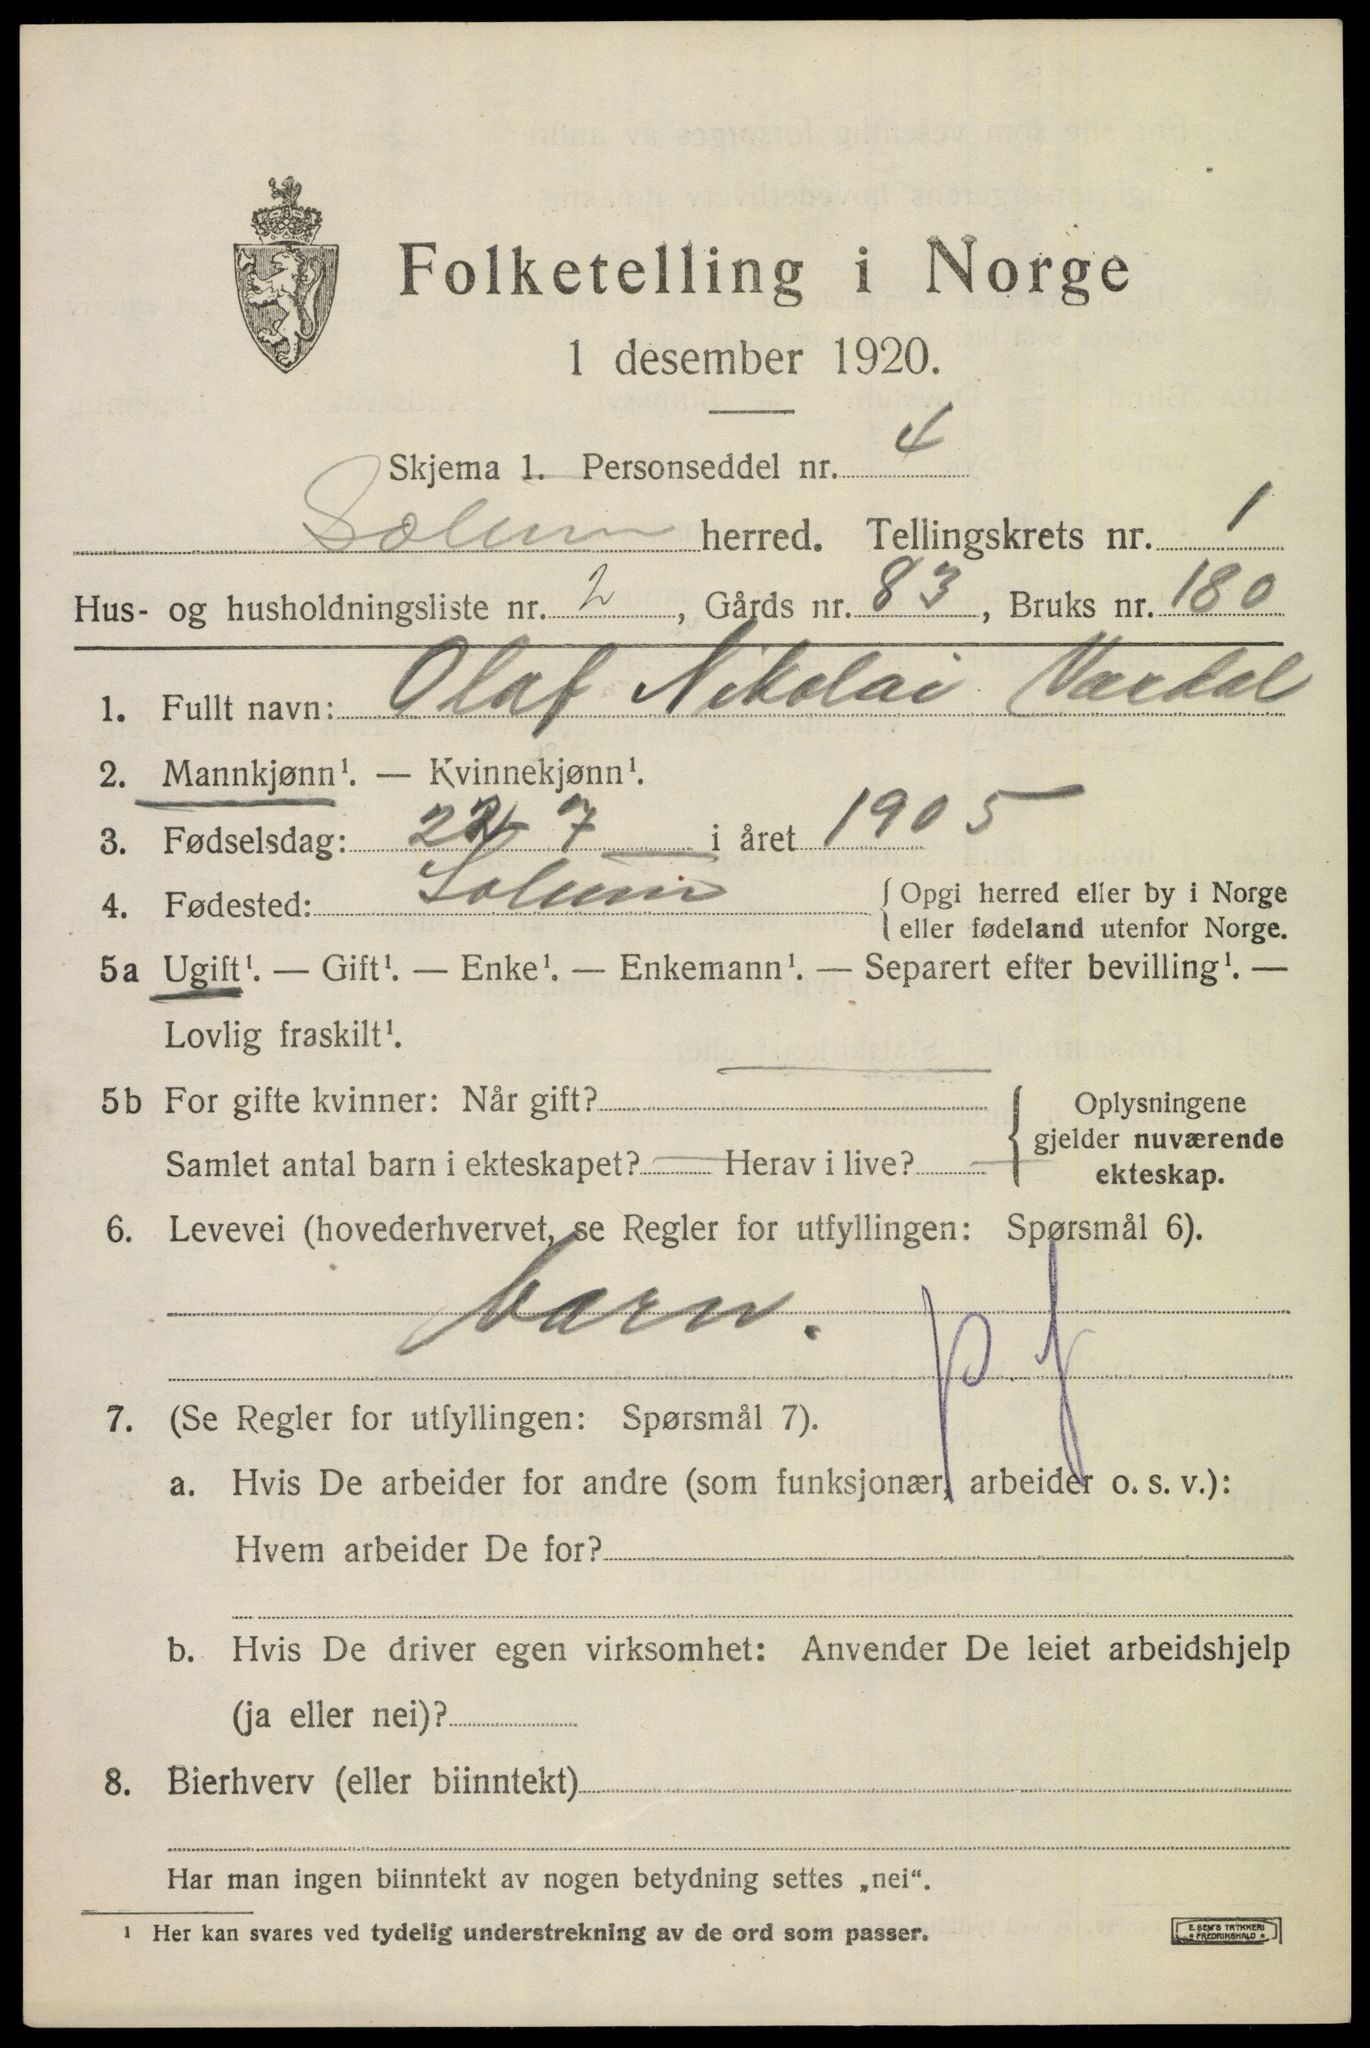 Folketelling i Norge
1 desember 1920.
Skjema 1. Personseddel nr. 4
Solum herred. Tellingskrets nr. 1
Hus- og husholdningsliste nr. 2, Gårds nr. 83, Bruks nr. 180
1. Fullt navn: Olaf Nikolai
2. Mannkjønn¹. — Kvinnekjønn¹.
3. Fødselsdag: 7 i året 1905
4. Fødested: Solum {Opgi herred eller by i Norge
eller fødeland utenfor Norge.
5a Ugift¹. — Gift¹. — Enke¹. — Enkemann¹. — Separert efter bevilling¹. —
Lovlig fraskilt¹.
5b For gifte kvinner: Når gift?
Samlet antal barn i ekteskapet? — Herav i live? —
{Oplysningene
gjelder nuværende
ekteskap.
6. Levevei (hovederhvervet, se Regler for utfyllingen: Spørsmål 6).
barn.
p f
7. (Se Regler for utfyllingen: Spørsmål 7).
a. Hvis De arbeider for andre (som funksjonær, arbeider o. s. v.):
Hvem arbeider De for?
b. Hvis De driver egen virksomhet: Anvender De leiet arbeidshjelp
(ja eller nei)?
8. Bierhverv (eller biinntekt)
Har man ingen biinntekt av nogen betydning settes „nei“.
¹ Her kan svares ved tydelig understrekning av de ord som passer.
E. SEM'S TRYKKERI
FREDRIKSHALD